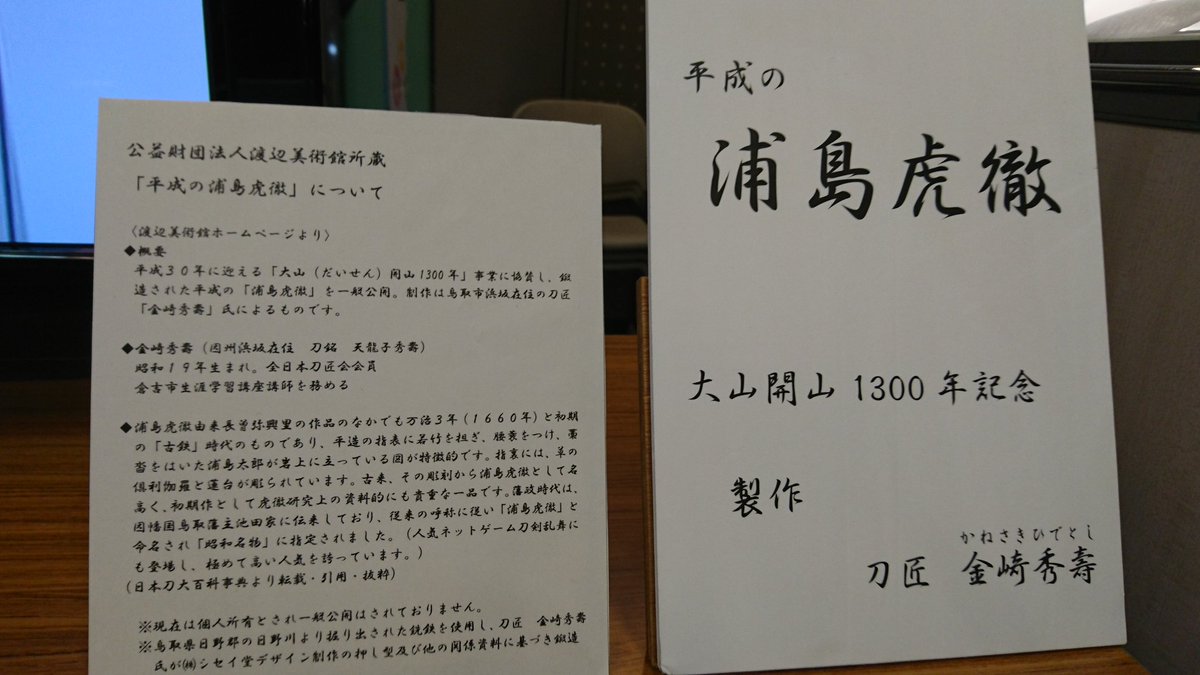 公益財団法人渡辺美術館所蔵
「平成の浦島虎徹」について
〈渡辺美術館ホームページより〉
◆概要
平成30年に迎える「大山（だいせん）開山1300年」事業に協賛し、鍛
造された平成の「浦島虎徹」を一般公開。制作は鳥取市浜坂在住の刀匠
「金崎秀壽」氏によるものです。
◆金崎秀壽（因州浜坂在住　刀銘　天龍子秀壽）
昭和19年生まれ。全日本刀匠会会員
倉吉市生涯学習講座講師を務める
◆浦島虎徹由来長曽祢興里の作品のなかでも万治3年(1660年)と初期
の「古鉄」時代のものであり、平造の指表に若竹を担ぎ、腰蓑をつけ、藁
沓をはいた浦島太郎が岩上に立っている図が特徴的です。指裏には、草の
倶利伽羅と蓮台が彫られています。古来、その彫刻から浦島虎徹として名
高く、初期作として虎徹研究上の資料的にも貴重な一品です。藩政時代は、
因幡国鳥取藩主池田家に伝来しており、従来の呼称に従い「浦島虎徹」と
命名され「昭和名物」に指定されました。（人気ネットゲーム刀剣乱舞に
も登場し、極めて高い人気を誇っています。）
(日本刀大百科事典より転載・引用・抜粋)
※現在は個人所有とされ一般公開はされておりません。
※鳥取県日野郡の日野川より掘り出された銑鉄を使用し、刀匠　金崎秀壽
氏が㈱シセイ堂デザイン制作の押し型及び他の関係資料に基づき鍛造
平成の
浦島虎徹
大山開山1300年記念
製作
かねさきひでとし
刀匠　金崎秀壽